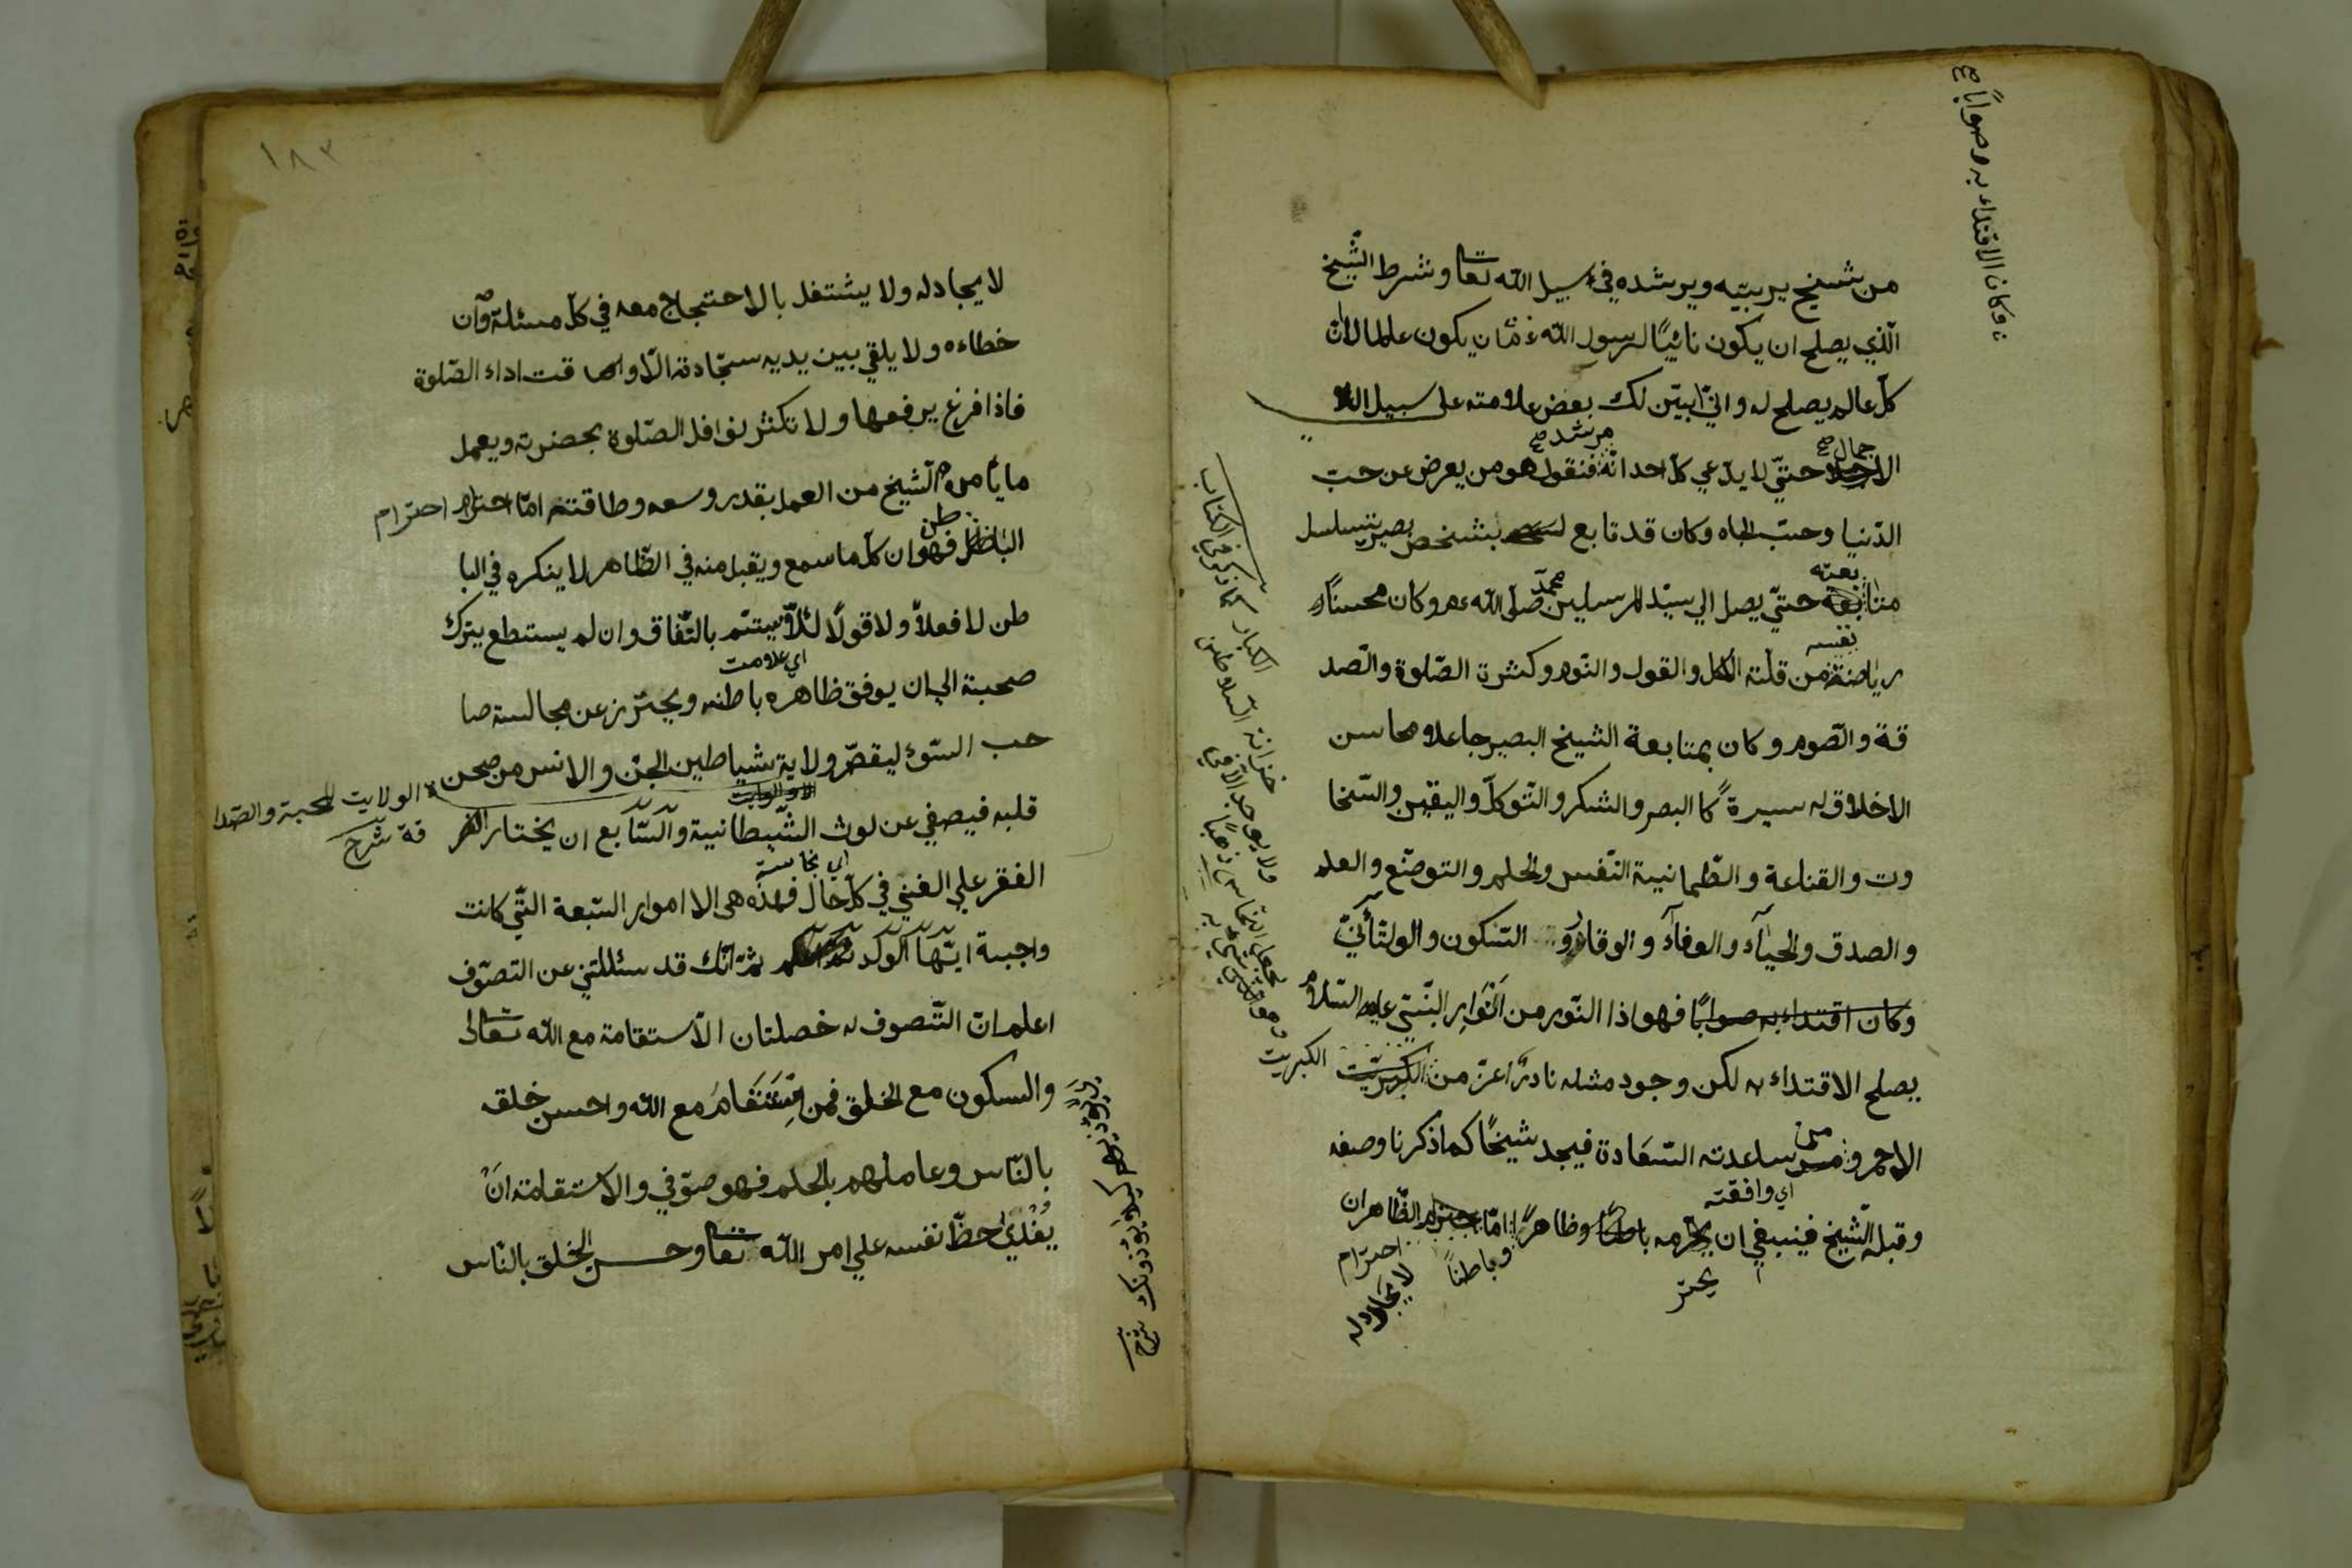 من شيخ يربيّه ويرشده في سبيل الله تعا وشرط الشّيخ
الّذي يصلح ان يكون نائبًا لرسول الله ءم ان يكون عالما لا انّ
كلّ عالم يصلح له وانّي ابيّن لك بعض علامته على سبيل
جمال صح
مرشد صح
الاجمال حتّي لا يدّعي كلّ احد انّه فنقول هو من يعرض عن حبّ
الدّنيا وحبّ الجاه وكان قد تابع بشخص بصير يتسلسل
بعته
متابعه حتّي يصل الي سيّد المرسلين محمّد صلّى الله ءم وكان محسنًا
نفسه
رياضة من قلّة الاكل والقول والنّوم وكثرة الصّلوة والصّد
قة والصّوم وكان بمتابعة الشيخ البصير جاعلا محاسن
الاخلاق له سيرة كا البصر والشكر والتّوكلّ واليقين والسّخا
وت والقناعة والطّمانية النّفس والحلم والتوضّع والعلم
والصدق والحيآء والوفاء والوقار و السّكون والو لتّأنيّ
وكان اقتداء به صوابًا فهو اذا النّور من انوار النّبيّ عليه السّلام
يصلح الاقتداء به لكن وجود مثله نادرًا اعزّ من الكبريت
الكبريت
من
الاحمر و من ساعدته السّعادة فيجد شيخًا كما ذكرنا وصفه
اي وافقته
وقبله الشّيخ فينبغي ان يحترمه باطنًا وظاهرًا امّا احترام الظّاهر ان
يحتر
وباطنًا
احترام
لا يجادله
وكان الاقتداء به صوابًا صح
ما ذكر في الكتاب
ولا يوجد الّا في
خزانة السّلاطين
لا يجادله ولا يشتغل بالاحتجاج معه في كلّ مسئلة وان
خطاءه ولا يلقي بين يديه سجّادته الّا وقت اداء الصّلوة
فاذا فرغ يرفعها ولا تكثر نوافل الصّلوة بحضرته ويعمل
ما يأمره الشّيخ من العمل بقدر وسعه وطاقته امّا احترام احترام
طن
الباطن فهو ان كلّ ما سمع ويقبل منه في الظّاهر لا ينكره في البا
طن لا فعلاً ولا قولًا لئلاّ يتّسم بالنّفاق وان لم يستطع يترك
اي علامت
صحبته الي ان يوفق ظاهره باطنه ويحترز عن مجالسة صا
حب السّوء ليقصّر ولاية شياطين الجنّ والانس من صحن
الولايت المحبة والصّدا
قة شرح
قلبه فيصفي عن لوث الشّيطانية والسّابع ان يختار
اي نجاسة
الفقر علي الغني في كلّ حال فهذه هي الا امور السّبعة الّتي كانت
واجبة ايّها الولد ثمّ انّك قد سئلتني عن التصوّف
اعلم انّ التّصوف له خصلتان الّاستقامة مع الله تعالى
والسكون مع الخلق فمن اِسْتَقَامَ مع الله واحسن خلقه
بالنّاس وعاملهم بالحلم فهو صوّفي والاستقامة انْ
يُفْدي حظّ نفسه علي امر الله تعا وحسن الخلق بالنّاس
١٨٣